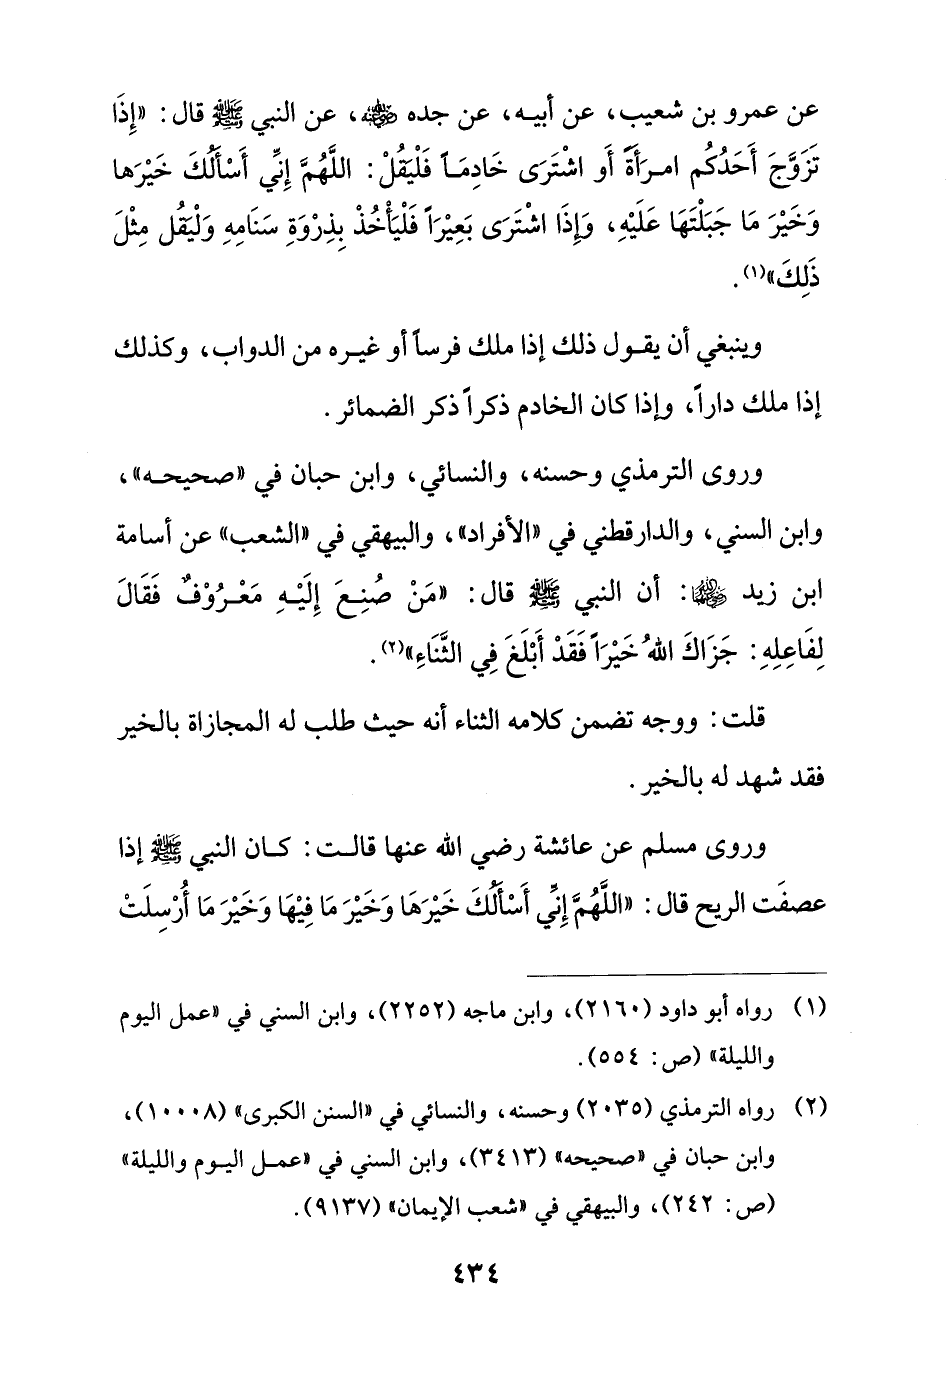 عن عمرو بن شعيب، عن أبيـه، عن جده ﵁، عن النبي ﷺ قال: «إِذَا
تَزَوَّجَ أَحَدُكُم امـرَأَةً أو اشْتَرَى خَادِمَـاً فَلْيَقُلْ: اللَّهُمَّ إِنِّي أَسْأَلُكَ خَيْرَها
وَخَيْرَ مَا جَبَلْتَهَا عَلَيْهِ، وَإِذَا اشْتَرَى بَعِيْرَاً فَلْيَأْخُذْ بِذِرْوَةِ سَنَامِهِ وَلْيَقُل مِثْلَ
ذَلِكَ»(١).
وينبغي أن يقـول ذلك إذا ملك فرساً أو غيـره من الدواب، وكذلك
إذا ملك داراً، وإذا كان الخادم ذكراً ذكر الضمائر.
وروى الترمذي وحسنه، والنسائي، وابن حبان في «صحيحـه»،
وابن السني، والدارقطني في «الأفراد»، والبيهقي في «الشعب» عن أسامة
ابن زيد ﵄: أن النبي ﷺ قال: «مَنْ صُنِـعَ إِلَيْـهِ مَعْـرُوْفٌ فَقَالَ
لِفَاعِلِهِ: جَزَاكَ اللهُ خَيْرَاً فَقَدْ أَبْلَغَ فِي الثَّنَاءِ»(٢).
قلت: ووجه تضمن كلامه الثناء أنه حيث طلب له المجازاة بالخير
فقد شهد له بالخير.
وروى مسلم عن عائشة رضي الله عنها قالـت: كـان النبي ﷺ إذا
عصفَت الريح قال: «اللَّهُمَّ إِنِّي أَسْأَلُكَ خَيْرَهَا وَخَيْرَ مَا فِيْهَا وَخَيْرَ مَا أُرْسِلَتْ
(١) رواه أبو داود (٢١٦٠)، وابن ماجه (٢٢٥٢)، وابن السني في «عمل اليوم
والليلة» (ص: ٥٥٤).
(٢) رواه الترمذي (٢٠٣٥) وحسنه، والنسائي في «السنن الكبرى» (١٠٠٠٨)،
وابن حبان في «صحيحه» (٣٤١٣)، وابن السني في «عمـل اليـوم والليلة»
(ص: ٢٤٢)، والبيهقي في «شعب الإيمان» (٩١٣٧).
٤٣٤